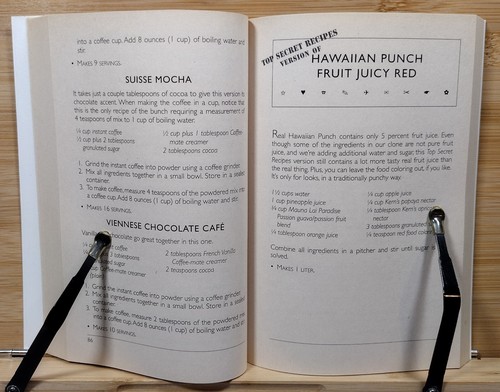 into a coffee cup. Add 8 ounces (1 cup) of boiling water and
stir.
• MAKES 9 SERVINGS.
SUISSE MOCHA
It takes just a couple tablespoons of cocoa to give this version its
chocolate accent. When making the coffee in a cup, notice that
this is the only recipe of the bunch requiring a measurement of
4 teaspoons of mix to 1 cup of boiling water.
instant coffee
cup plus 2 tablespoons
granulated sugar
½ cup plus 1 tablespoon Coffee-
mate creamer
2 tablespoons cocoa
1. Grind the instant coffee into powder using a coffee grinder.
2. Mix all ingredients together in a small bowl. Store in a sealed
container.
3. To make coffee, measure 4 teaspoons of the powdered mix into
a coffee cup. Add 8 ounces (1 cup) of boiling water and stir.
• MAKES 16 SERVINGS.
VIENNESE CHOCOLATE CAFÉ
chocolate go great together in this one.
coffee
3 tablespoons
sugar
Coffee-mate creamer
(plain)
2 tablespoons French Vanilla
Coffee-mate creamer
2 teaspoons cocoa
1. Grind the instant coffee into powder using a coffee grinder.
2. Mix all ingredients together in a small bowl. Store in a sealed
container.
3. To make coffee, measure 2 tablespoons of the powdered mix
into a coffee cup. Add 8 ounces (1 cup) of boiling water and stir.
• MAKES 10 SERVINGS.
86
TOP SECRET RECIPES
VERSION OF
HAWAIIAN PUNCH
FRUIT JUICY RED
Real Hawaiian Punch contains only 5 percent fruit juice. Even
though some of the ingredients in our clone are not pure fruit
juice, and we're adding additional water and sugar, this Top Secret
Recipes version still contains a lot more tasty real fruit juice than
the real thing. Plus, you can leave the food coloring out, if you like.
It's only for looks, in a traditionally punchy way.
cups water
1 cup pineapple juice
cup Mauna Lai Paradise
Passion guava/passion fruit
blend
¼ tablespoon orange juice
¼ cup apple juice
¼ cup Kern's papaya nectar
tablespoon Kern's
nectar
3 tablespoons granulated
¼ teaspoon red food coloring
Combine all ingredients in a pitcher and stir until sugar
solved.
• MAKES 1 LITER.